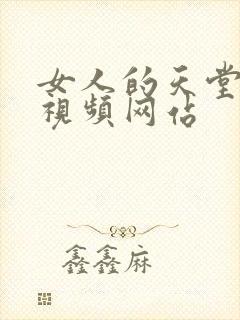 女人的天堂
視頻网佔
鑫鑫麻